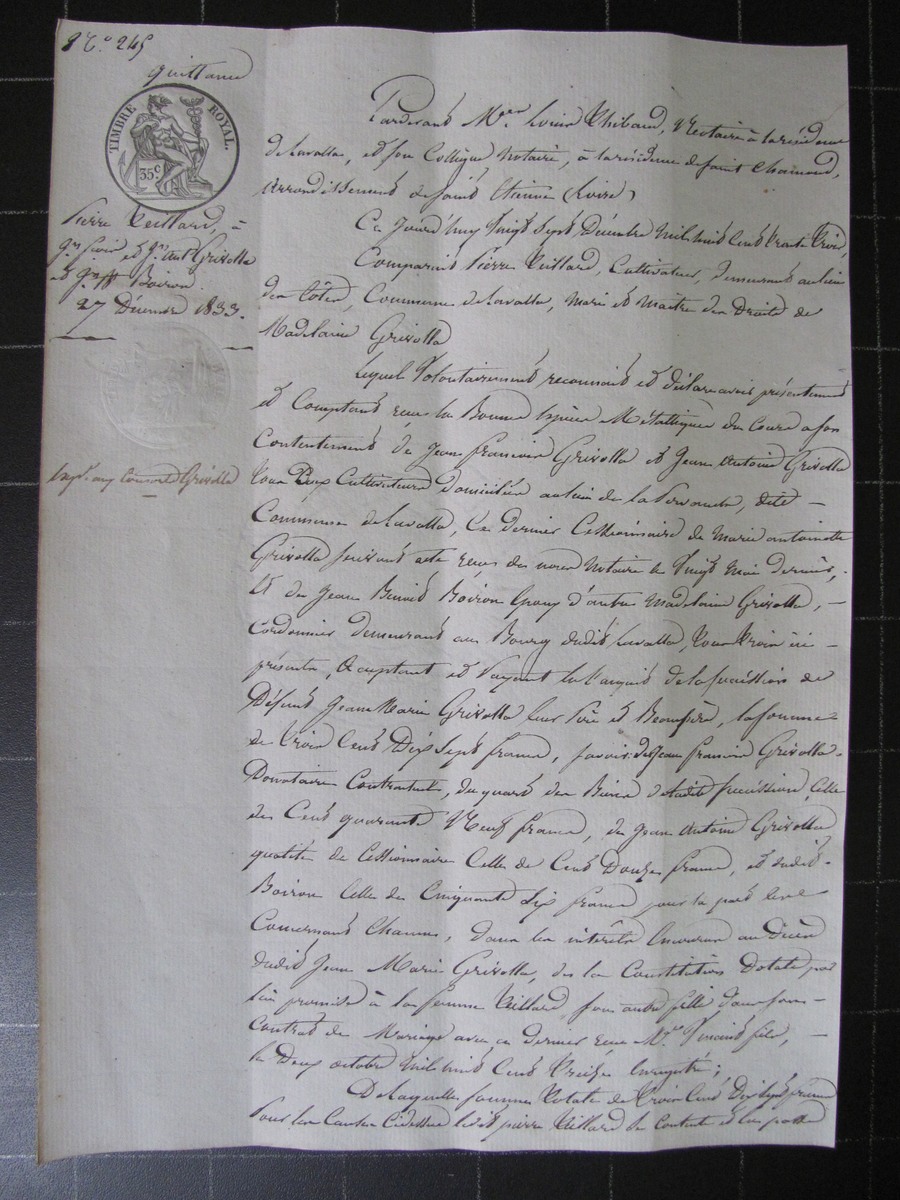 N.° 245
quittance
TIMBRE ROYAL.
35 c.
Pierre Teillard, à
Jn. fcois et Jn. ant. Grivolla
et Jn. Bt. Boiron.
27 Décembre 1833.
Exp.on aux consorts Grivolla
Pardevant M.tre Louis Thibaud, Notaire à la résidence
de Lavalla, et son Collègue Notaire, à la résidence de Saint Chamond,
arrondissement de Saint Etienne (Loire)
Ce jourd'huy vingt sept Décembre mil huit cent trente trois,
Comparait Pierre Teillard, Cultivateur, demeurant au lieu
des Côtes, Commune de Lavalla, mari et maître des Droits de
Madelaine Grivolla
Lequel volontairement reconnait et déclare avoir présentement
et comptant reçu en Bonnes espèces Métalliques du cours a son
Contentement de Jean françois Grivolla et Jean Antoine Grivolla
tous Deux Cultivateurs domiciliés au lieu de la , dite
Commune de Lavalla, Ce dernier Cessionnaire de Marie antoinette
Grivolla suivant acte reçu des nores Notaire le vingt mai dernier,
Et de Jean Benoit Boiron Epoux d'autre Madelaine Grivolla,
Cordonnier demeurant au Bourg dudit Lavalla, tous trois ici
présents, acceptant et Payant en l'acquit de la succession de
Défunt Jean Marie Grivolla leur Père et Beaupère, la somme
de trois Cent Dix Sept francs, savoir: du Jean francois Grivolla
Donataire Contractuel, du quart des Biens de ladite succession, Celle
de Cent quarante Neuf francs, du Jean Antoine Grivolla
qualité de Cessionnaire Celle de Cent Douze francs, et dudit
Boiron Celle de Cinquante Six francs pour la part les
Concernant Chacun, dans les intérêts encourus au Décès
dudit Jean Marie Grivolla, de la Constitution Dotale par
lui promise à la femme Teillard son autre fille dans son
Contrat de Mariage avec ce dernier reçu M.tre Finaud fils,
le Deux octobre mil huit cent treize Enregistré;
De laquelle somme totale de trois Cent Dix Sept francs
Pour les Causes Cidessus ledit pierre Teillard se contente et en passe